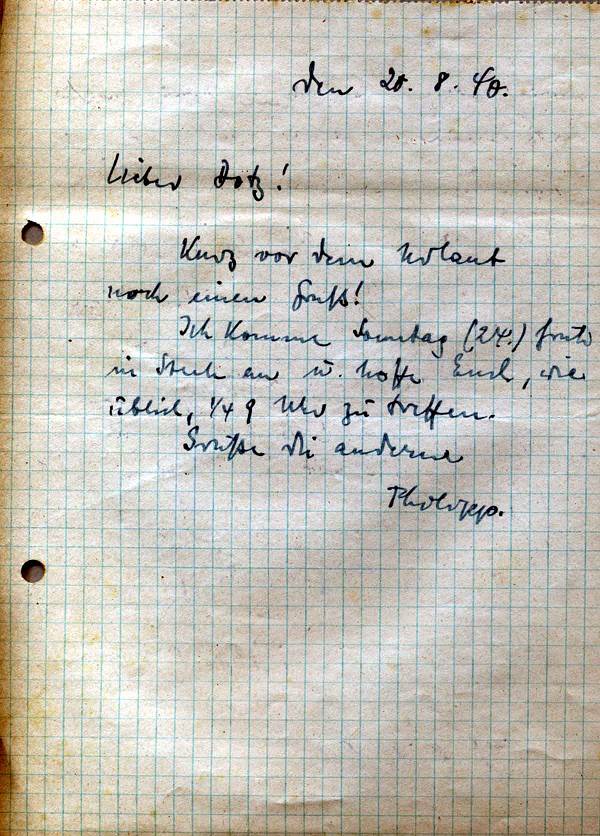 den 20. 8. 40.
Lieber Dotz!
Kurz vor dem Urlaub
noch einen Gruß!
Ich komme Sonntag (24.) früh
in an u. hoffe Euch, wie
üblich, 1/4 9 Uhr zu treffen.
Grüße die anderen
Philipp.